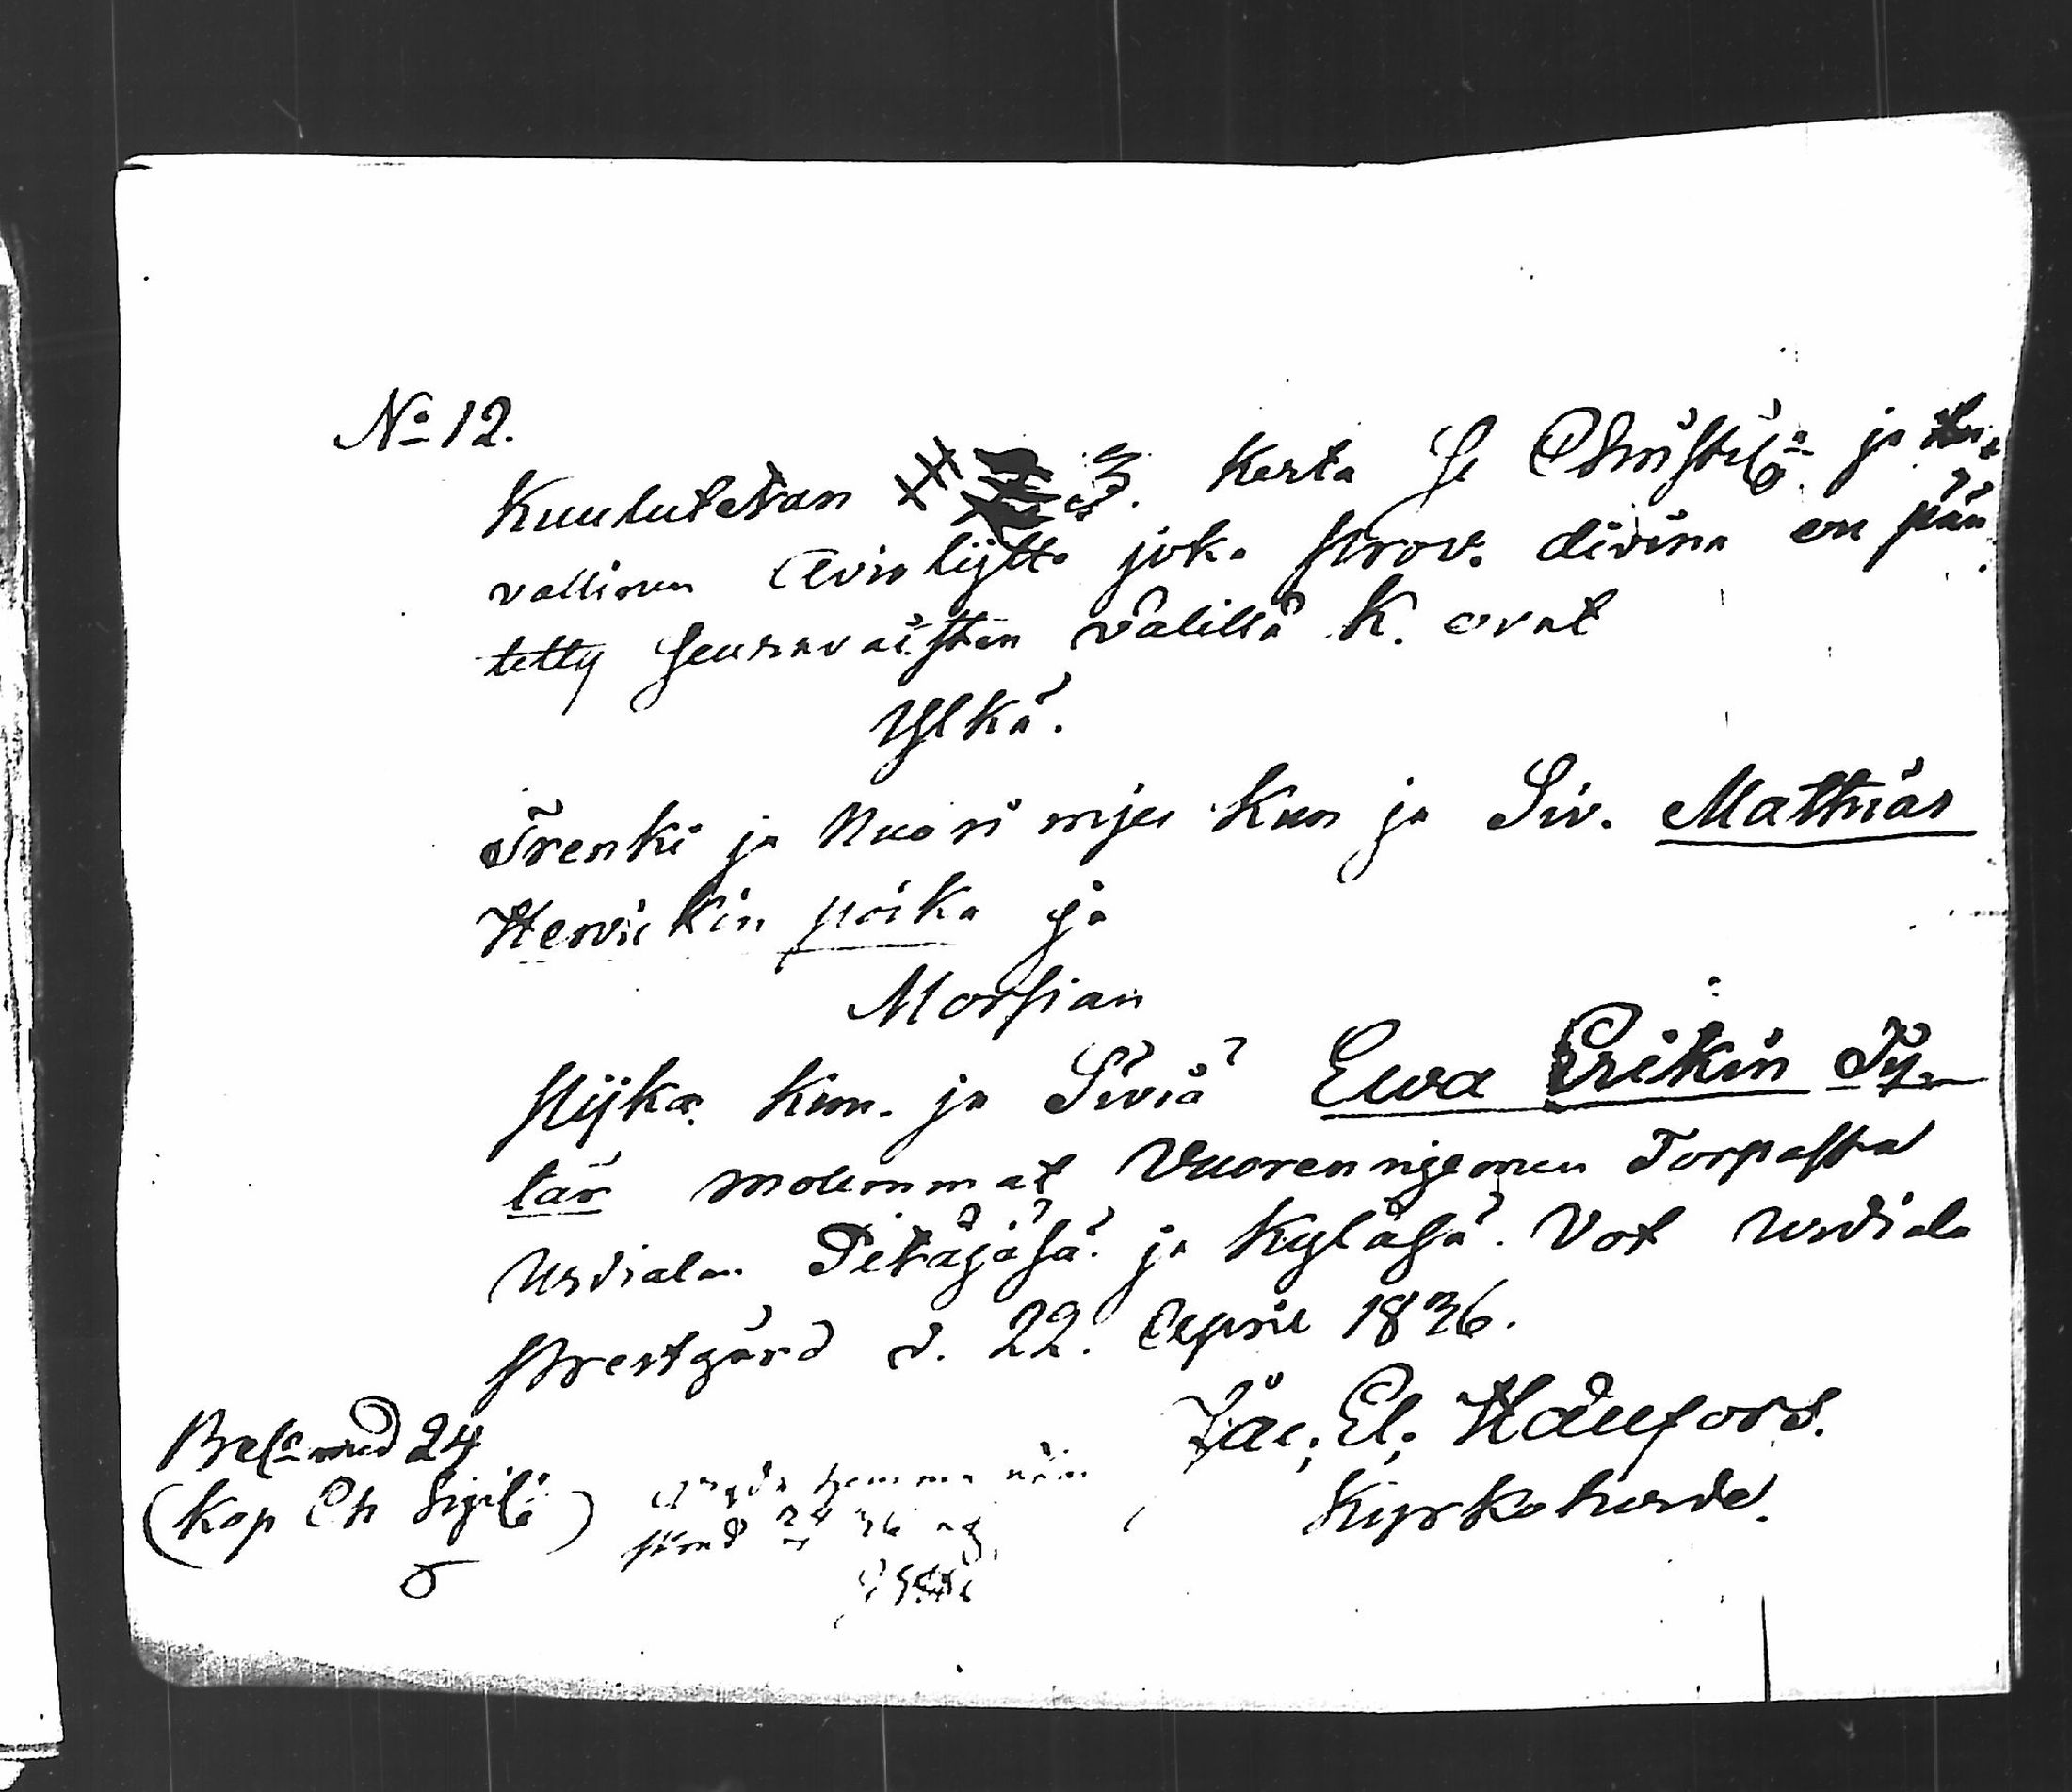 No 12.
Kuulutetan 3. Kerta Se Christil: ja lu-
vallinen Avioliјtto joka Prov. divina on pää
tetty seuravaisten välillä K. ovat
Ylkä.
Trenki ja Nuori mjes Kun ja Siv. Mathias
Henrickin poika ja
Morsian
Pijka Kun. ja Siviä Ewa Erikin Ty-
tär molemmat Vuorennjemen Torpasta
Urdialan Pitäjäsä ja Kyläsä. Vot Urdiala
Prestgård d. 22. April 1836.
Jac. El. Hällfors.
Kyrkoherde.
24
(Kap Ch Sigill)